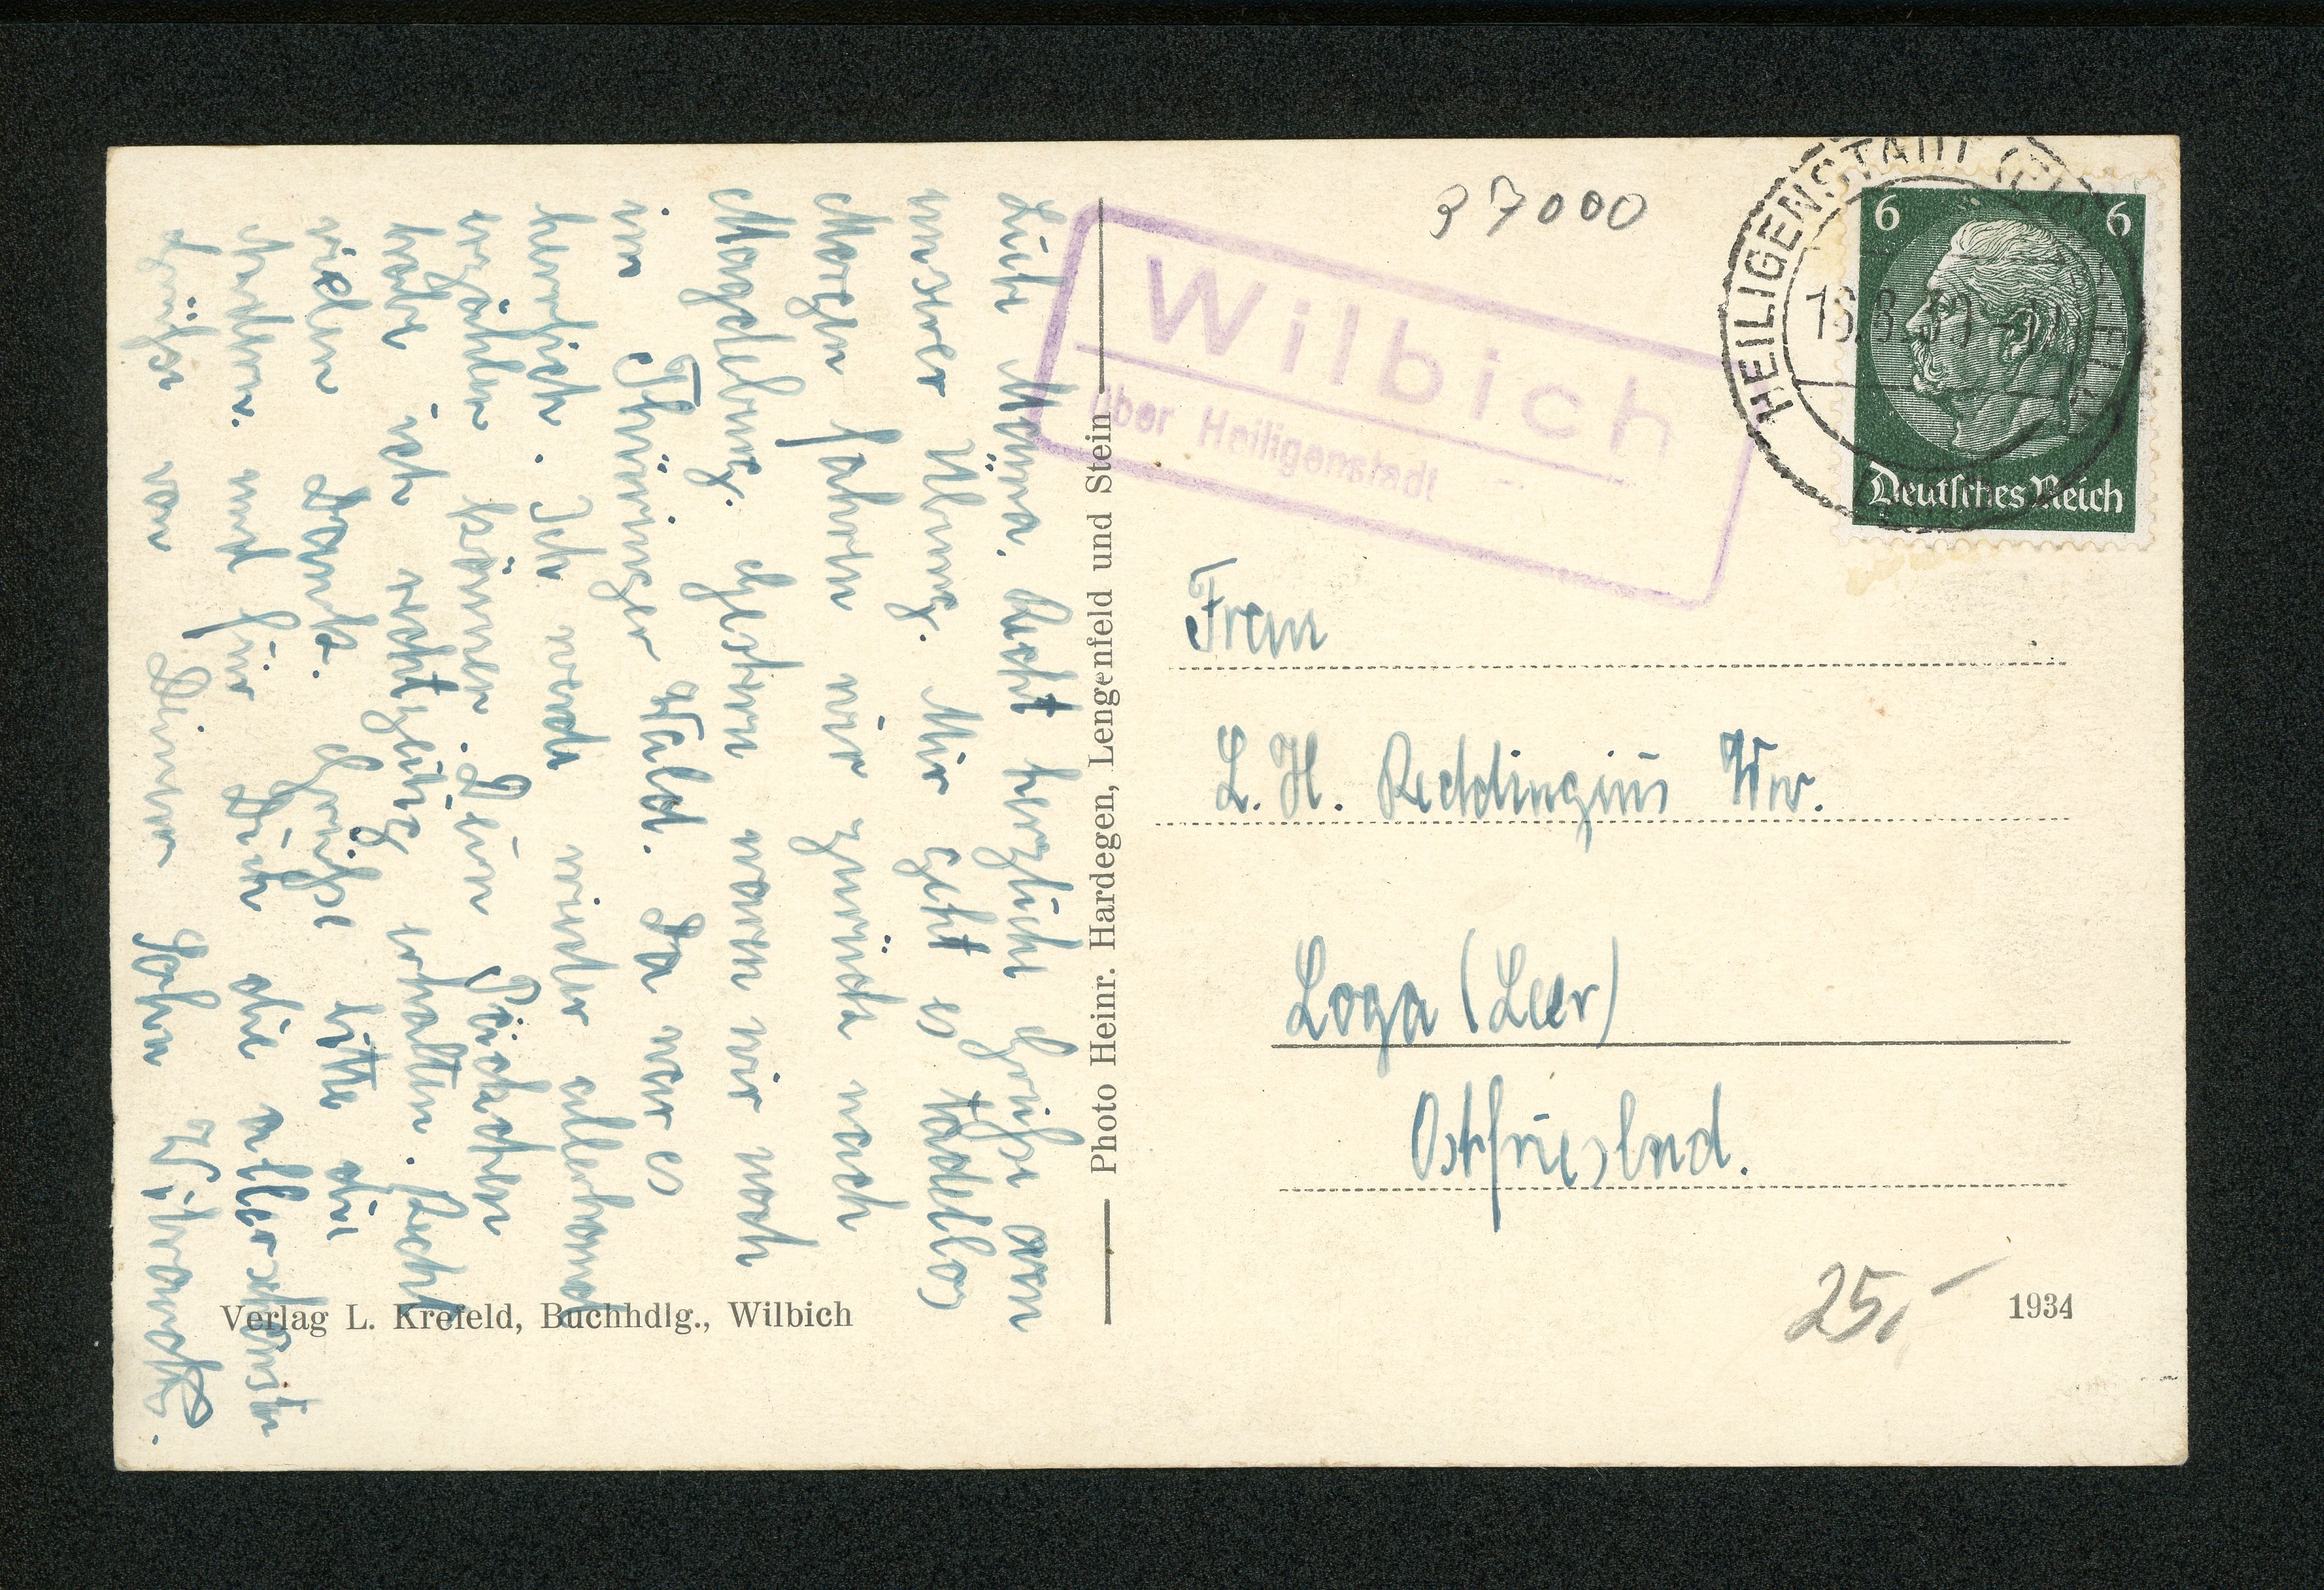 Liebe Mama. Recht herzliche Grüße von
unsrer Übung. Mir geht es tadellos
Morgen fahren wir zurück nach
Magdeburg. Gestern waren wir noch
im Thüringer Wald. Da war es
herrlich. Ich werde wieder allerhand
erzählen können. Dein Päckchen
habe ich richtig erhalten. Recht
vielen Dank. Grüße bitte die
andern und für Dich die allerschönsten
Grüße von Deinem Sohn
Verlag L. Krefeld, Buchhdlg., Wilbich
Photo Heinr. Hardegen, Lengenfeld und Stein
37000
Wilbich
über Heiligenstadt
HEILIGENSTADT
6 6
Deutsches Reich
Frau
L. H. Reddingius Ww.
Loga (Leer)
Ostfrieslnd.
25,-
1934